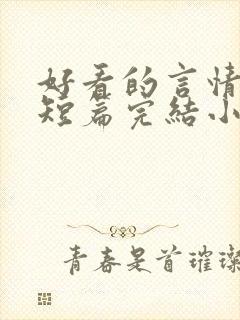 好看的言情
短篇完結小
青春是首璀璨